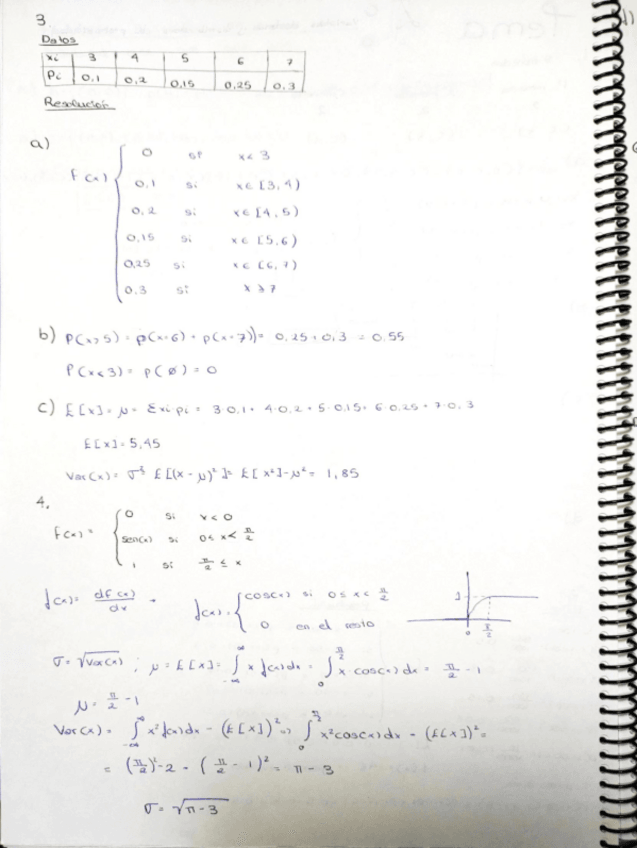 3
Datos
xi 3 4 5 6 7
Pi 0,1 0,2 0,15 0,25 0,3
Resolución
a)
F(x) { 0 si x < 3
0,1 si x ∈ [3, 4)
0,2 si x ∈ [4, 5)
0,15 si x ∈ [5, 6)
0,25 si x ∈ [6, 7)
0.3 si x ≥ 7
b) P(x>5) = p(x=6) + p(x=7)) = 0,25 + 0,3 = 0,55
P(x<3) = p(∅) = 0
c) E[x] = μ = Σxi pi = 3·0,1 + 4·0,2 + 5·0,15 + 6·0,25 + 7·0,3
E[x] = 5,45
Var(x) = σ² = E[(x-μ)²] = E[x²]-μ² = 1,85
4.
F(x) = { 0 si x < 0
sen(x) si 0 ≤ x < π/2
1 si π/2 ≤ x
f(x) = dF(x)/dx → f(x) = { cos(x) si 0 ≤ x < π/2
0 en el resto
1
0 π/2
σ = √Var(x) ; μ = E[x] = ∫_{-∞}^{∞} x f(x) dx = ∫_0^{π/2} x · cos(x) dx = π/2 - 1
μ = π/2 - 1
Var(x) = ∫_{-∞}^{∞} x² f(x) dx - (E[x])² => ∫_0^{π/2} x² cos(x) dx - (E[x])² =
= (π/2)² - 2 - (π/2 - 1)² = π - 3
σ = √π - 3